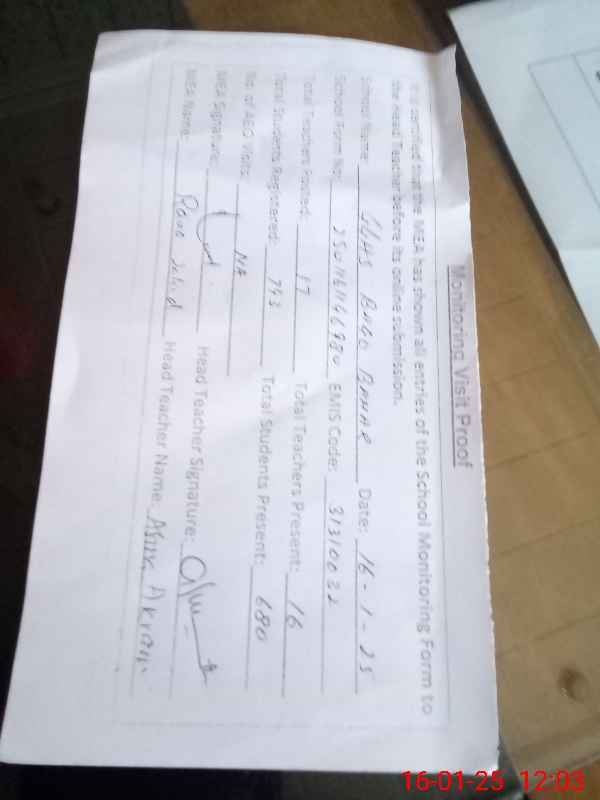 Monitoring Visit Proof
It is certified that the MEA has shown all entries of the School Monitoring Form to
the Head Teacher before its online submission.
School Name: GGHS BAGO BAHAR Date: 16-1-25
School Form No: EMIS Code: 31310022
Total Teachers Posted: 17 Total Teachers Present: 16
Total Students Registered: 743 Total Students Present: 680
No of AEO Visits: NA
MEA Signature: Head Teacher Signature:
MEA Name: Head Teacher Name: Asma Akram
16-01-25 12:03